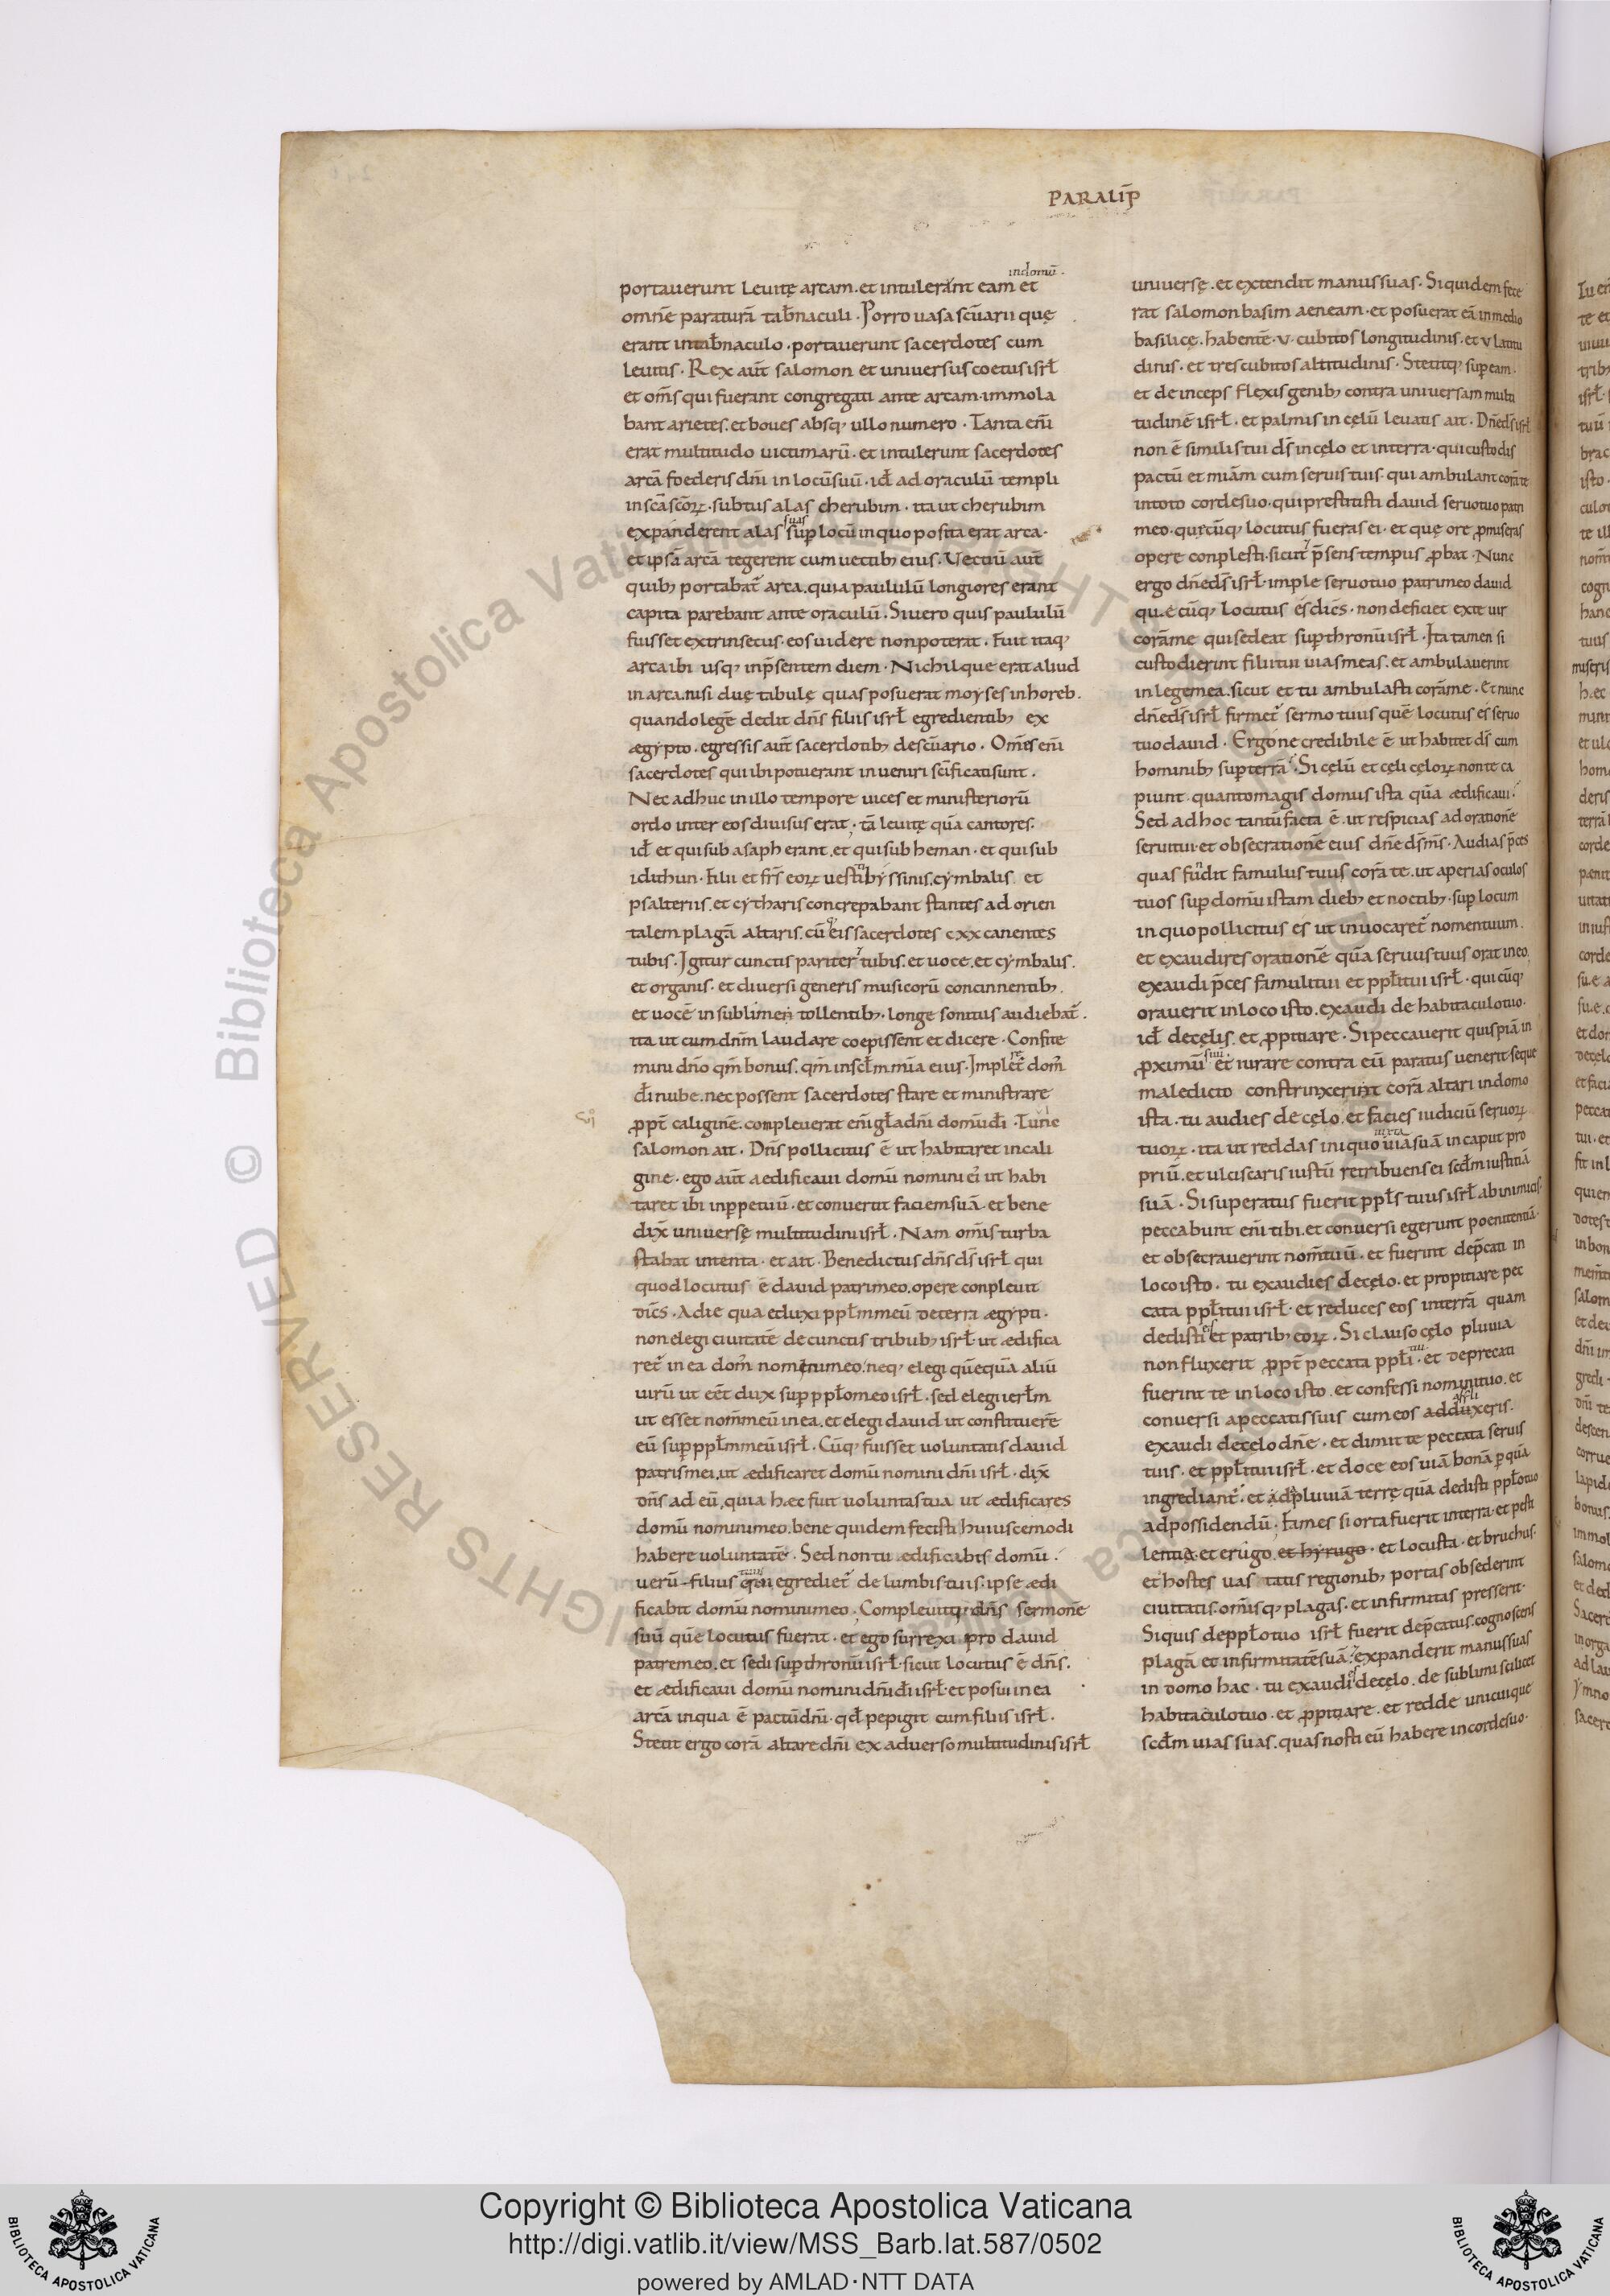 PARALIP̄
indomū ·
portauerunt leuitę arcam. et intulerant eam et
omnē paraturā tab̄naculi · Porro uasa sc̄uarii quę
erant intab̄naculo · portauerunt sacerdotes cum
leuitis · Rex aūt salomon et uniuersus coetus isrł
et om̄s qui fuerant congregati ante arcam · immola
bant arietes. et boues absq; ullo numero · Tanta eni̅
erat multitudo uictimarū · et intulerunt sacerdotes
arcā foederis dn̄i in locū suū · id̄ ad oraculū templi
in sc̄a sc̄oꝝ · subtus alas cherubim · ita ut cherubim
suas
expanderent alas sup̄ locū in quo posita erat arca ·
et ipsā arcā tegerent cum uectib; eius · Uectiū aūt
quib; portabat̃ arca. quia paululū longiores erant
capita parebant ante oraculū · Si uero quis paululū
fuisset extrinsecus · eos uidere non poterat · Fuit itaq;
arca ibi usq; inp̄sentem diem · Nichilque erat aliud
in arca. nisi duę tabulę quas posuerat moyses in horeb ·
quando legē dedit dn̄s filiis isrł egredientib; ex
ægypto · egressis aūt sacerdotib; de sc̄uario · Om̄s eni̅
sacerdotes qui ibi potuerant inueniri sc̄ificati sunt ·
Nec adhuc in illo tempore uices et ministeriorū
ordo inter eos diuisus erat · tā leuitę quā cantores ·
id̄ et qui sub asaph erant. et qui sub heman · et qui sub
idithun · Filii et frs̄ eoꝝ uestiti byssinis. cymbalis et
psalteriis. et cytharis concrepabant stantes ad orien
talem plagā altaris. cū eis sacerdotes cxx canentes
tubis · Igitur cunctis pariter tubis. et uoce. et cymbalis ·
et organis · et diuersi generis musicorū concinnentib; ·
et uocē in sublime tollentib; · longe sonitus audiebat̃ ·
ita ut cum dnm̄ laudare coepissent et dicere · Confite
mini dn̄o qm̄ bonus. qm̄ in scłm mi̅a eius · Implet̃ dom̃
di̅ nube. nec possent sacerdotes stare et ministrare
ꝓpt̃ caliginē. compleuerat eni̅ gła dn̄i domū di̅ · Tunc
salomon ait · Dn̄s pollicitus ē ut habitaret in cali
gine · ego aūt aedificaui domū nomini ei᷒ ut habi
taret ibi inp̱petuū · et conuertit faciem suā · et bene
dix̄ uniuersę multitudini isrł · Nam om̄is turba
stabat intenta · et ait · Benedictus dn̄s ds̄ isrł qui
quod locutus ē dauid patri meo. opere conpleuit
dic̄s · A die qua eduxi ppłm meū de terra ægypti ·
non elegi ciuitatē de cunctis tribub; isrł ut ædifica
ret̃ in ea dom̃ nomini meo. neq; elegi quēquā aliū
uirū ut eēt dux sup̄ ppło meo isrł · sed elegi ierłm
ut esset nom̄ meū in ea. et elegi dauid ut constituerē
eū sup̄ ppłm meū isrł · Cūq; fuisset uoluntatis dauid
patris mei. ut ædificaret domū nomini dn̄i isrł · dix̄
dn̄s ad eū. quia hæc fuit uoluntas tua ut ædificares
domū nomini meo. bene quidem fecisti huiuscemodi
habere uoluntatē · Sed non tu ædificabis domū ·
tuus
uerū filius qui egrediet̃ de lumbis tuis. ipse ædi
ficabit domū nomini meo · Compleuit dn̄s sermonē
suū quē locutus fuerat · et ego surrexi pro dauid
patre meo. et sedi sup̄ thronū isrł · sicut locutus ē dn̄s ·
et ædificaui domū nomini dn̄i di̅ isrł · et posui in ea
arcā in qua ē pactū dn̄i · qd̄ pepigit cum filiis isrł ·
Stetit ergo corā altare dn̄i ex aduerso multitudinis isrł
uniuersę. et extendit manus suas · Siquidem fece
rat salomon basim aeneam · et posuerat eā in medio
basilicę. habentē · v · cubitos longitudinis · et v latitu
dinis · et tres cubitos altitudinis · Stetitq; sup̄ eam ·
et deinceps flexis genib; contra uniuersam multi
tudinē isrł · et palmis in cęlū leuatis ait · Dn̄e ds̄ isrł
non ē similis tui ds̄ in cęlo et in terra · qui custodis
pactū et mi̅am cum seruis tuis · qui ambulant corā te
in toto corde suo · qui prestitisti dauid seruo tuo patri
meo · quęcūq; locutus fueras ei · et quę ore ꝓmiseras
opere conplesti · sicut p̄sens tempus ꝓbat · Nunc
ergo dn̄e ds̄ isrł · imple seruo tuo patri meo dauid
quęcūq; locutus es dicēs · non deficiet ex te uir
corā me qui sedeat sup̄ thronū isrł · Ita tamen si
custodierint filii tui uias meas. et ambulauerint
in lege mea. sicut et tu ambulasti corā me · Et nunc
dn̄e ds̄ isrł firmet̃ sermo tuus quē locutus es seruo
tuo dauid · Ergone credibile ē ut habitet ds̄ cum
hominib; sup̄ terrā · Si cęlū et cęli cęloꝝ non te ca
piunt · quanto magis domus ista quā ædificaui ·
Sed ad hoc tantū facta ē · ut respicias ad orationē
serui tui · et obsecrationē eius dn̄e ds̄ ms̄ · Audias p̄ces
quas fundit famulus tuus corā te. ut aperias oculos
tuos sup̄ domū istam dieb; et noctib; · sup̄ locum
in quo pollicitus es ut inuocaret̃ nomen tuum ·
et exaudires orationē quā seruus tuus orat in eo.
exaudi p̄ces famuli tui et ppłi tui isrł · quicūq;
orauerit in loco isto. exaudi de habitaculo tuo ·
id̄ de cęlis. et ꝓpitiare · Si peccauerit quispiā in
suū
ꝓximū et iurare contra eū paratus uenerit · seque
maledicto constrinxerint corā altari in domo
ista · tu audies de cęlo. et facies iudiciū seruoꝝ
iuxta
tuoꝝ · ita ut reddas iniquo uiā suā in caput pro
priū. et ulciscaris iustū retribuens ei scđm iustitiā
suā · Si superatus fuerit ppłs tuus isrł ab inimicis ·
peccabunt eni̅ tibi. et conuersi egerint poenitentiā ·
et obsecrauerint nom̄ tuū · et fuerint dep̄cati in
loco isto · tu exaudies de cęlo · et propitiare pec
cata ppłi tui isrł · et reduces eos in terrā quam
dedisti eis et patrib; eoꝝ · Si clauso cęlo pluuia
tui
non fluxerit ꝓpt̃ peccata ppłi · et deprecati
fuerint te in loco isto. et confessi nomini tuo. et
affli
conuersi a peccatis suis cum eos adduxeris ·
exaudi de cęlo dn̄e · et dimitte peccata seruis
tuis · et ppłi tui isrł · et doce eos uiā bonā p̱ quā
ingrediant̃ · et da pluuiā terrę quā dedisti ppło tuo
ad possidendū · Fames si orta fuerit in terra · et pesti
lentia et erugo et hyrugo · et locusta · et bruchus ·
et hostes uastatis regionib; portas obsederint
ciuitatis. om̄isq; plagas · et infirmitas presserit ·
Siquis de ppło tuo isrł fuerit dep̄catus. cognoscens
plagā et infirmitatē suā · expanderit manus suas
in domo hac · tu exaudi de cęlo. de sublimi scilicet
habitaculo tuo · et ꝓpitiare. et redde unicuique
scđm uias suas. quas nosti eū habere in corde suo ·
Copyright © Biblioteca Apostolica Vaticana
http://digi.vatlib.it/view/MSS_Barb.lat.587/0502
powered by AMLAD·NTT DATA